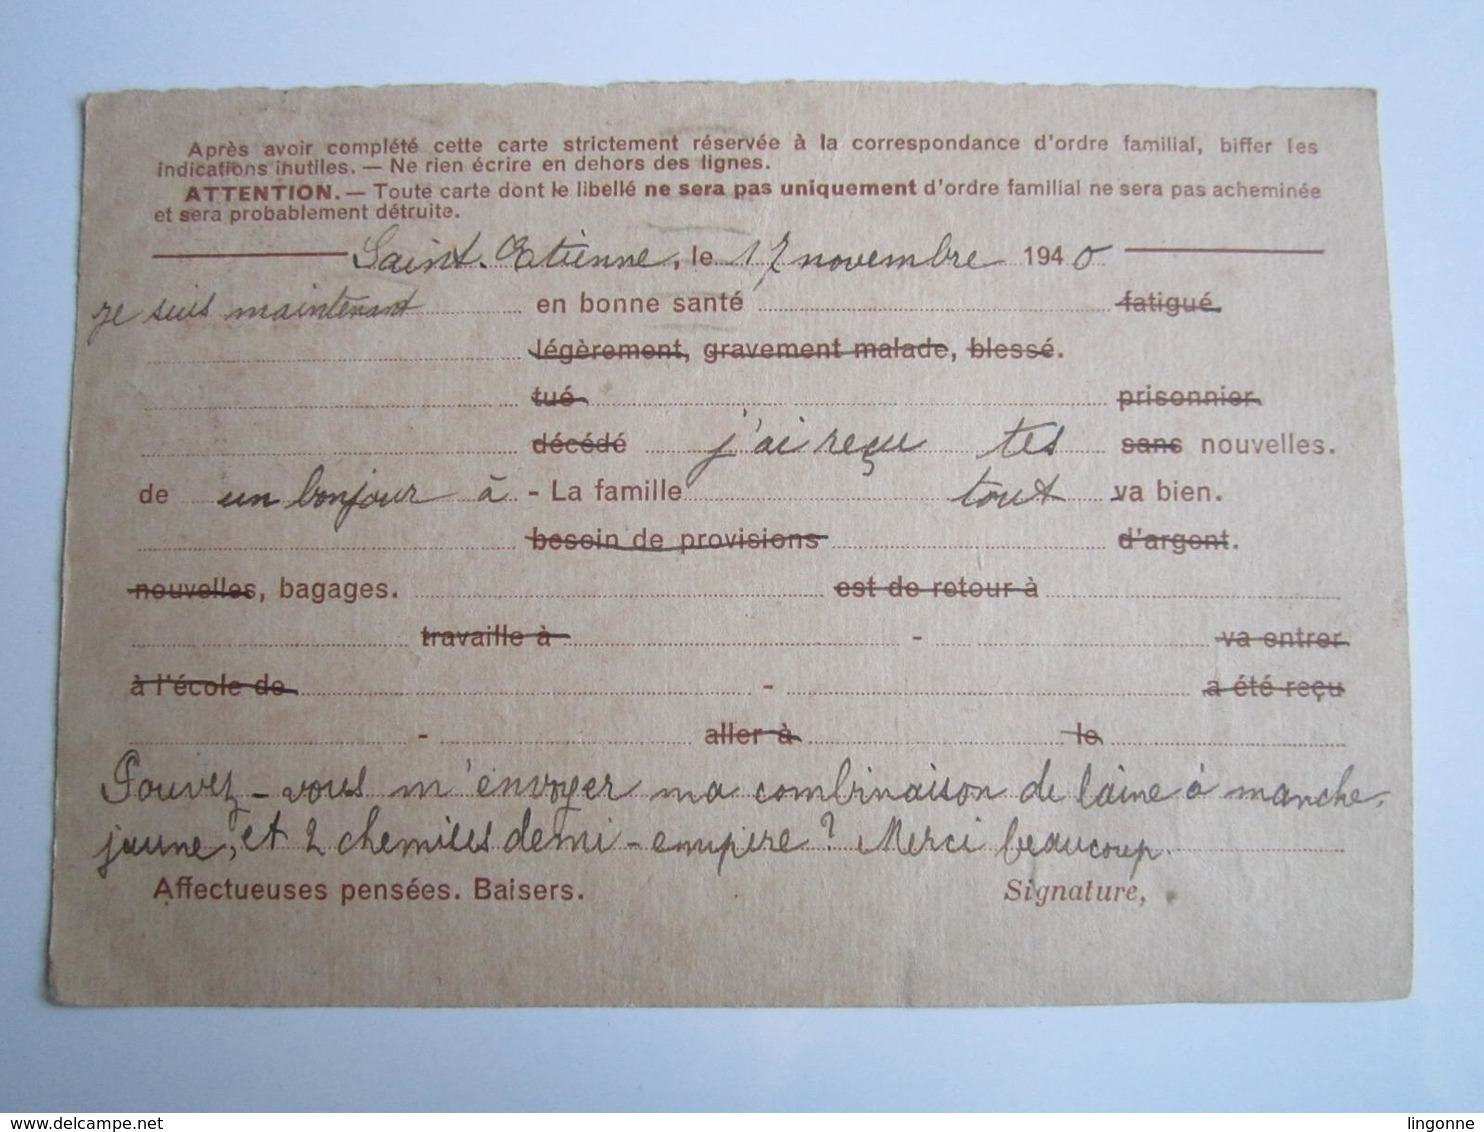 Après avoir complété cette carte strictement réservée à la correspondance d'ordre familial, biffer les
indications inutiles. — Ne rien écrire en dehors des lignes.
ATTENTION. — Toute carte dont le libellé ne sera pas uniquement d'ordre familial ne sera pas acheminée
et sera probablement détruite.
Saint-Etienne, le 17 novembre 1940
je suis maintenant en bonne santé fatigué.
légèrement, gravement malade, blessé.
tué prisonnier
décédé j'ai reçu tes sans nouvelles.
de un bonjour à - La famille tout va bien.
besoin de provisions d'argent.
nouvelles, bagages. est de retour à
travaille à - va entrer
à l'école de - a été reçu
- aller à le
Pouvez-vous m'envoyer ma combinaison de laine à manche,
jaune, et 2 chemises demi-empire? Merci beaucoup.
Affectueuses pensées. Baisers. Signature,
www.delcampe.net lingonne